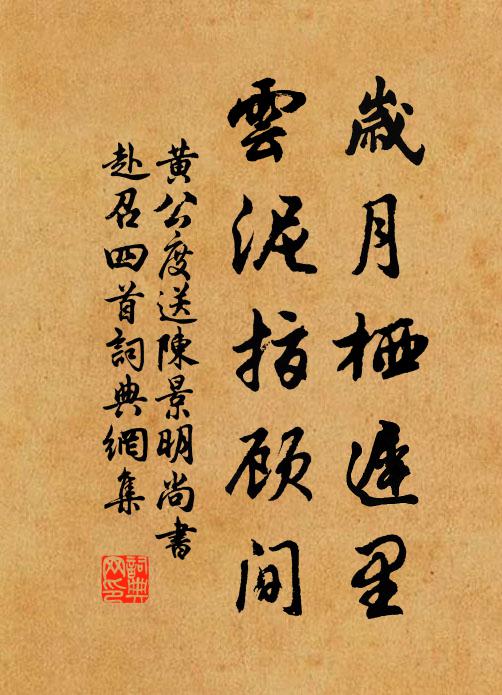 歲月栖遲里
雲泥指顾間
黃公度送陳景明尚書
赴召四首詞典網集
詞典网印